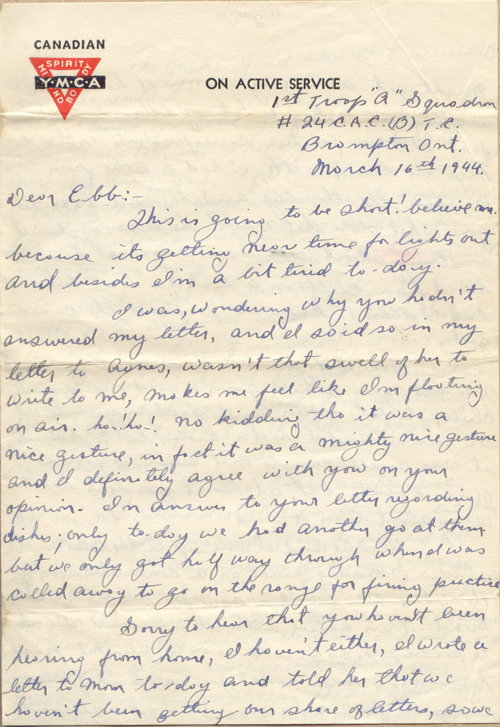 CANADIAN
SPIRIT
MIND
BODY
Y·M·C·A
ON ACTIVE SERVICE
1st Troop "A" Squadron
# 24 C.A.C. (B) T.C.
Brampton Ont.
March 16th 1944.
Dear Ebb:-
This is going to be short! believe me.
because its getting near time for lights out
and besides I'm a bit tired to-day.
I was, wondering why you hadn't
answered my letter, and I said so in my
letter to Agnes, wasn't that swell of her to
write to me, makes me feel like I'm floating
on air. ho! ho! no kidding tho it was a
nice gesture, in fact it was a mighty nice gesture
and I definitely agree with you on your
opinion. In answer to your letter regarding
dishes; only to-day we had another go at them
but we only got half way through when I was
called away to go on the range for firing practice
Sorry to hear that you haven't been
hearing from home, I haven't either, I wrote a
letter to Mom to-day and told her that we
haven't been getting our share of letters, so we